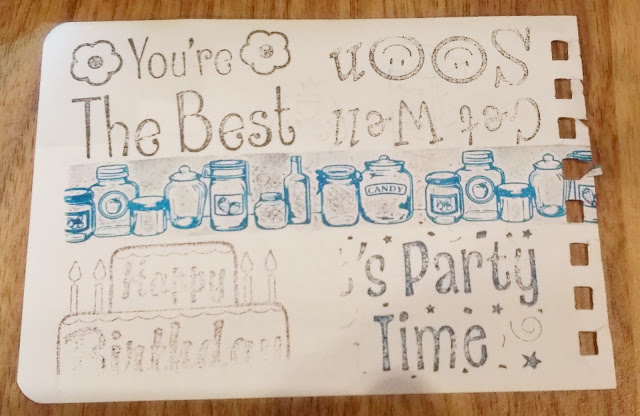 You're
The Best
Get Well
Soon
CANDY
Happy
Birthday
's Party
Time